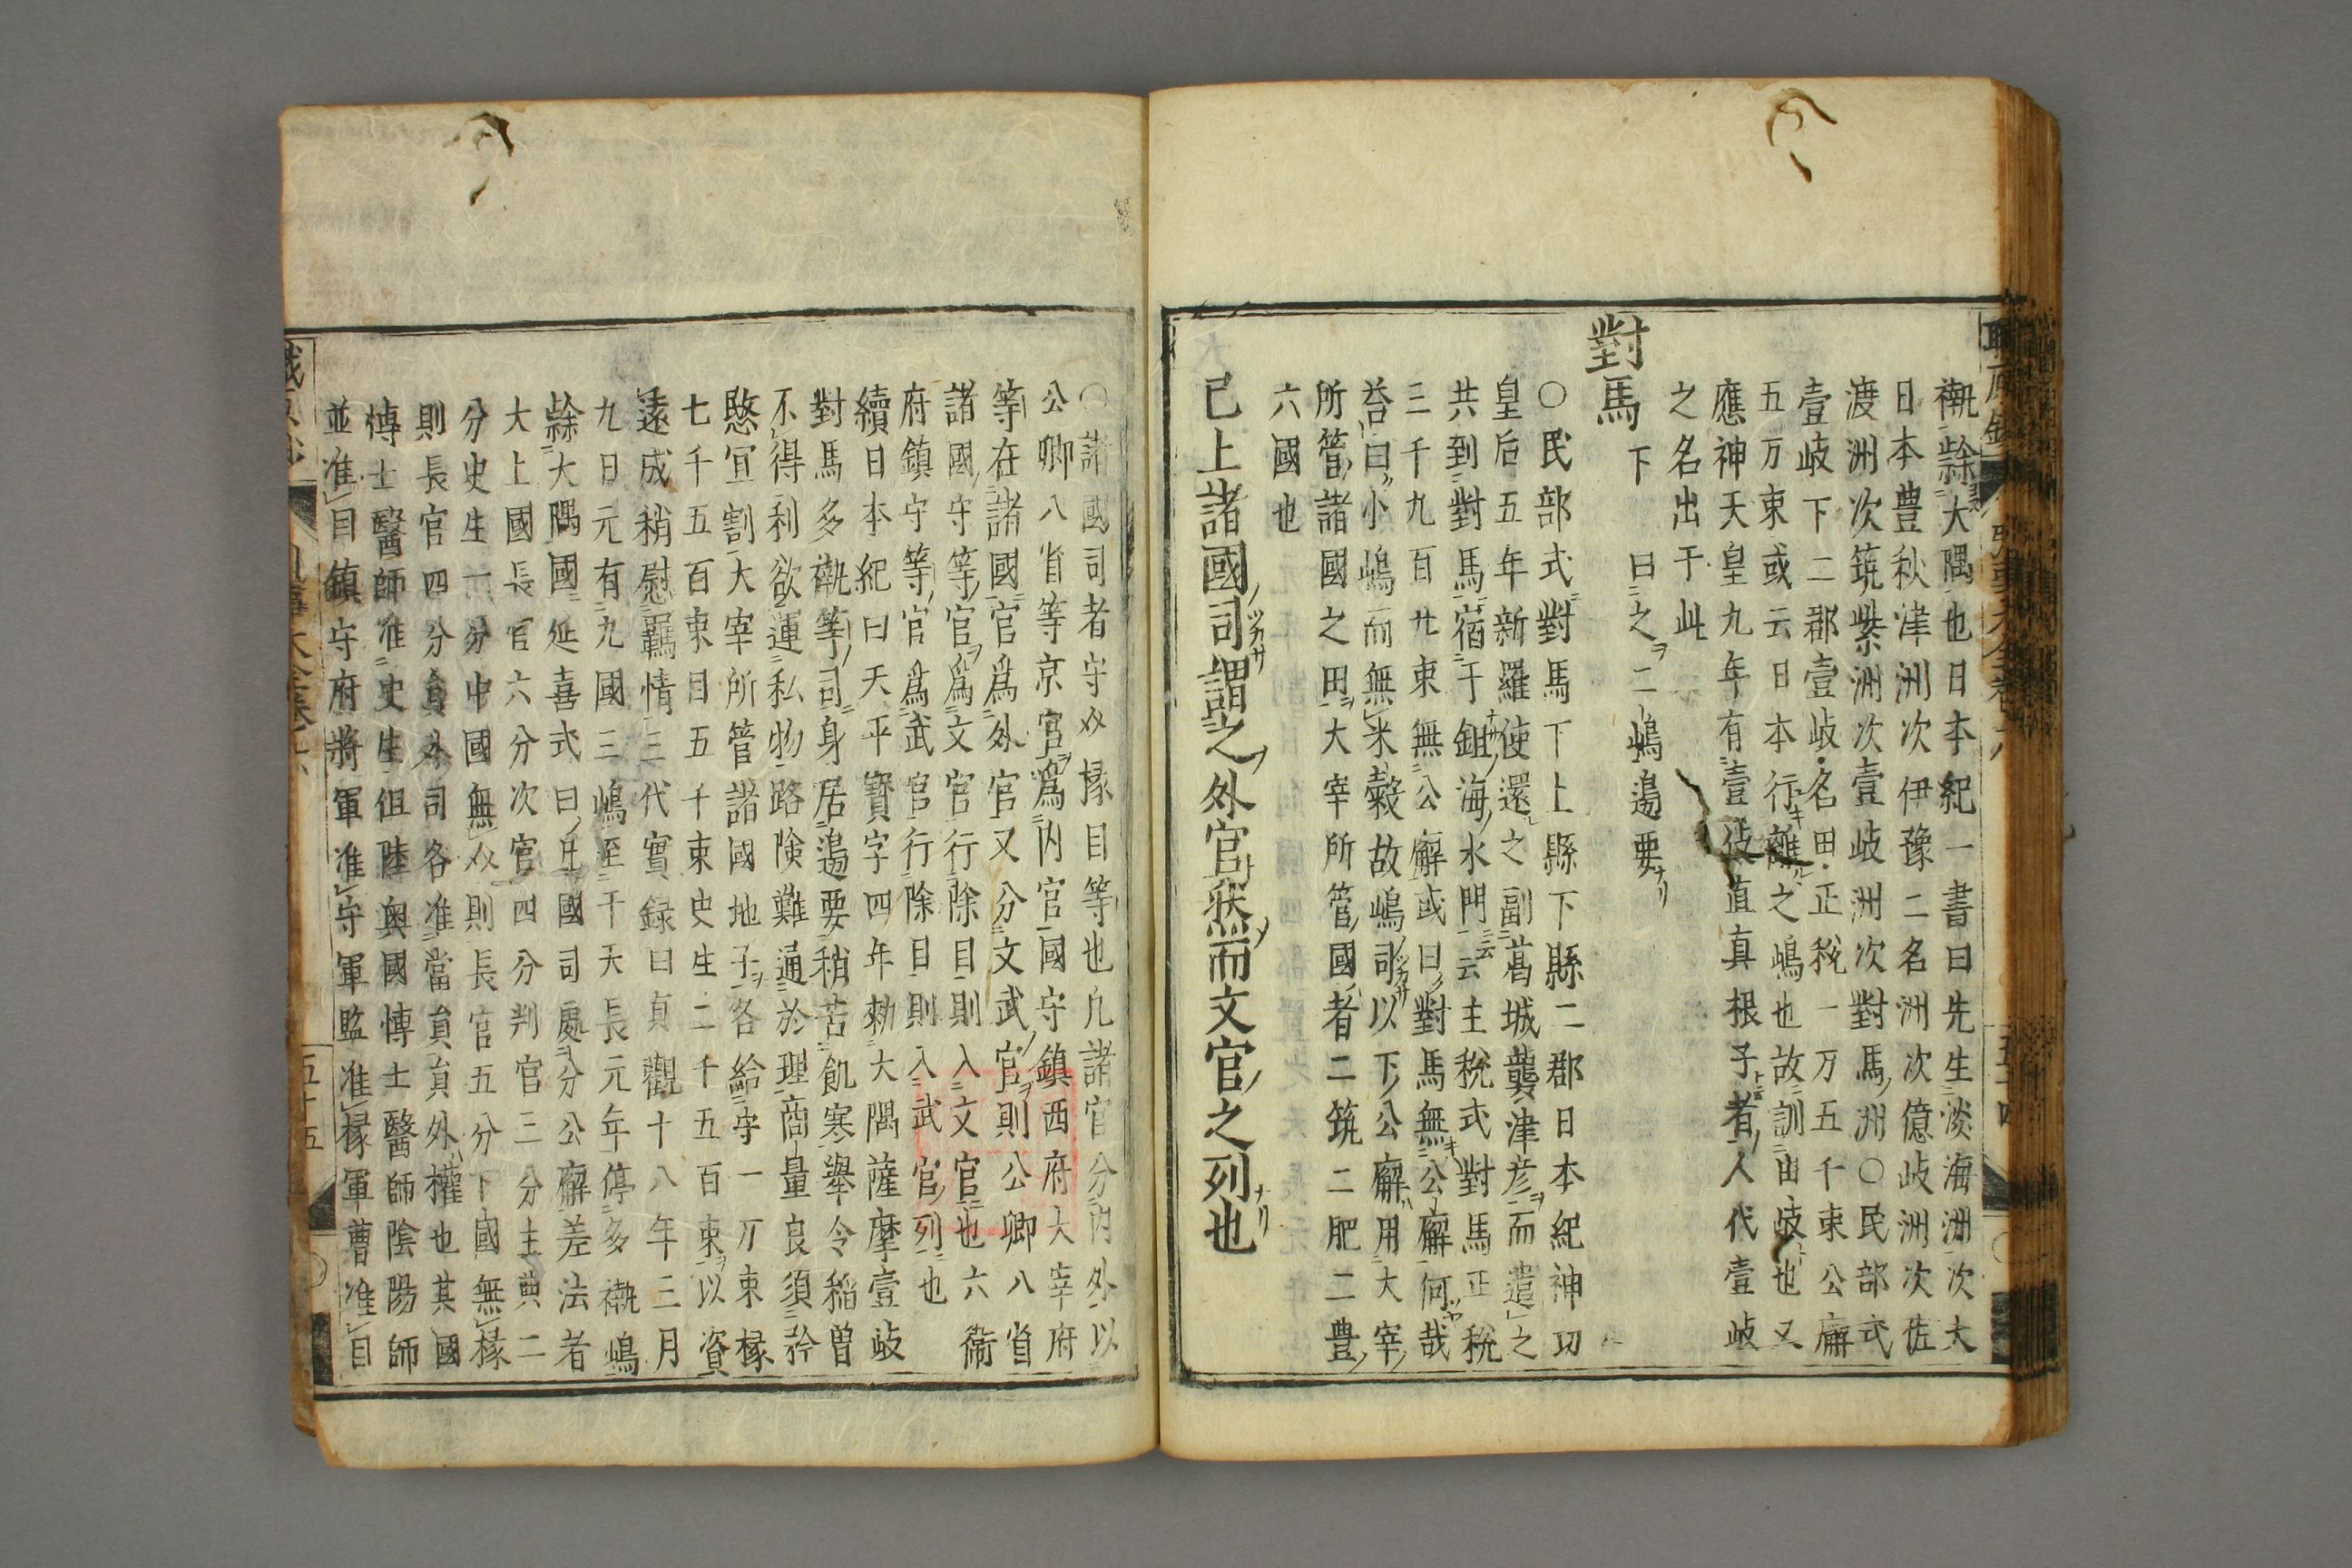 襯餘大隅也日本紀一書曰先生淡海洲次大
日本豊秋津洲次伊豫二名洲次億岐洲次佐
渡洲次筑紫洲次壹岐洲次對馬洲〇民部式
壹岐下二郡壹岐名田正税一万五千束公廨
五万束或云日本行離之嶋也故訓由岐也又
應神天皇九年有壹伎直真根子者人代壹岐
之名出于此
對馬
下
曰之二嶋邊要ナリ
〇民部式對馬下上縣下縣二郡日本紀神功
皇后五年新羅使還之副葛城襲津彦而遣之
共到對馬宿于鉏海水門云云主税式對馬正税
三千九百廿束無公廨或曰對馬無公廨何哉
荅曰小嶋而無米穀故嶋司以下公廨用大宰
所管諸國之田大宰所管國者二筑二肥二豊
六國也
已上諸國司謂之外官然而文官之列也
〇諸國司者守介掾目等也凡諸官分内外以
公卿八省等京官爲内官國守鎮西府大宰府
等在諸國官爲外官又分文武官則公卿八省
諸國守等官爲文官行除目則入文官也六衛
府鎮守等官爲武官行除目則入武官列也
續日本紀曰天平寶字四年勅大隅薩摩壹岐
對馬多襯等司身居邊要稍苦飢寒擧令稲曽
不得利欲運私物路険難通於理商量良須矜
愍宜割大宰所管諸國地子各給守一万束掾
七千五百束目五千束史生二千五百束以資
遠成稍慰羈情三代實録曰貞觀十八年三月
九日元有九國三嶋至于天長元年停多襯嶋
餘大隅國延喜式曰凡國司處分公廨差法者
大上國長官六分次官四分判官三分主典二
分史生一分中國無介則長官五分下國無掾
則長官四分員外司各准當員員外權也其國
博士醫師准史生但陸奥國博士醫師陰陽師
並准目鎮守府將軍准守軍監准掾軍曹准目
五十五